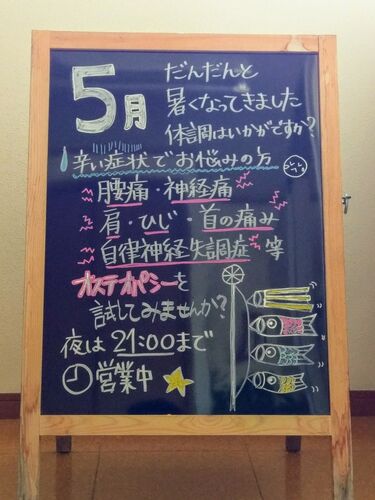 5月
だんだんと
暑くなってきました
体調はいかがですか?
辛い症状でお悩みの方
腰痛・神経痛
肩・ひじ・首の痛み
自律神経失調症 等
オステオパシーを
試してみませんか?
夜は 21:00まで
営業中